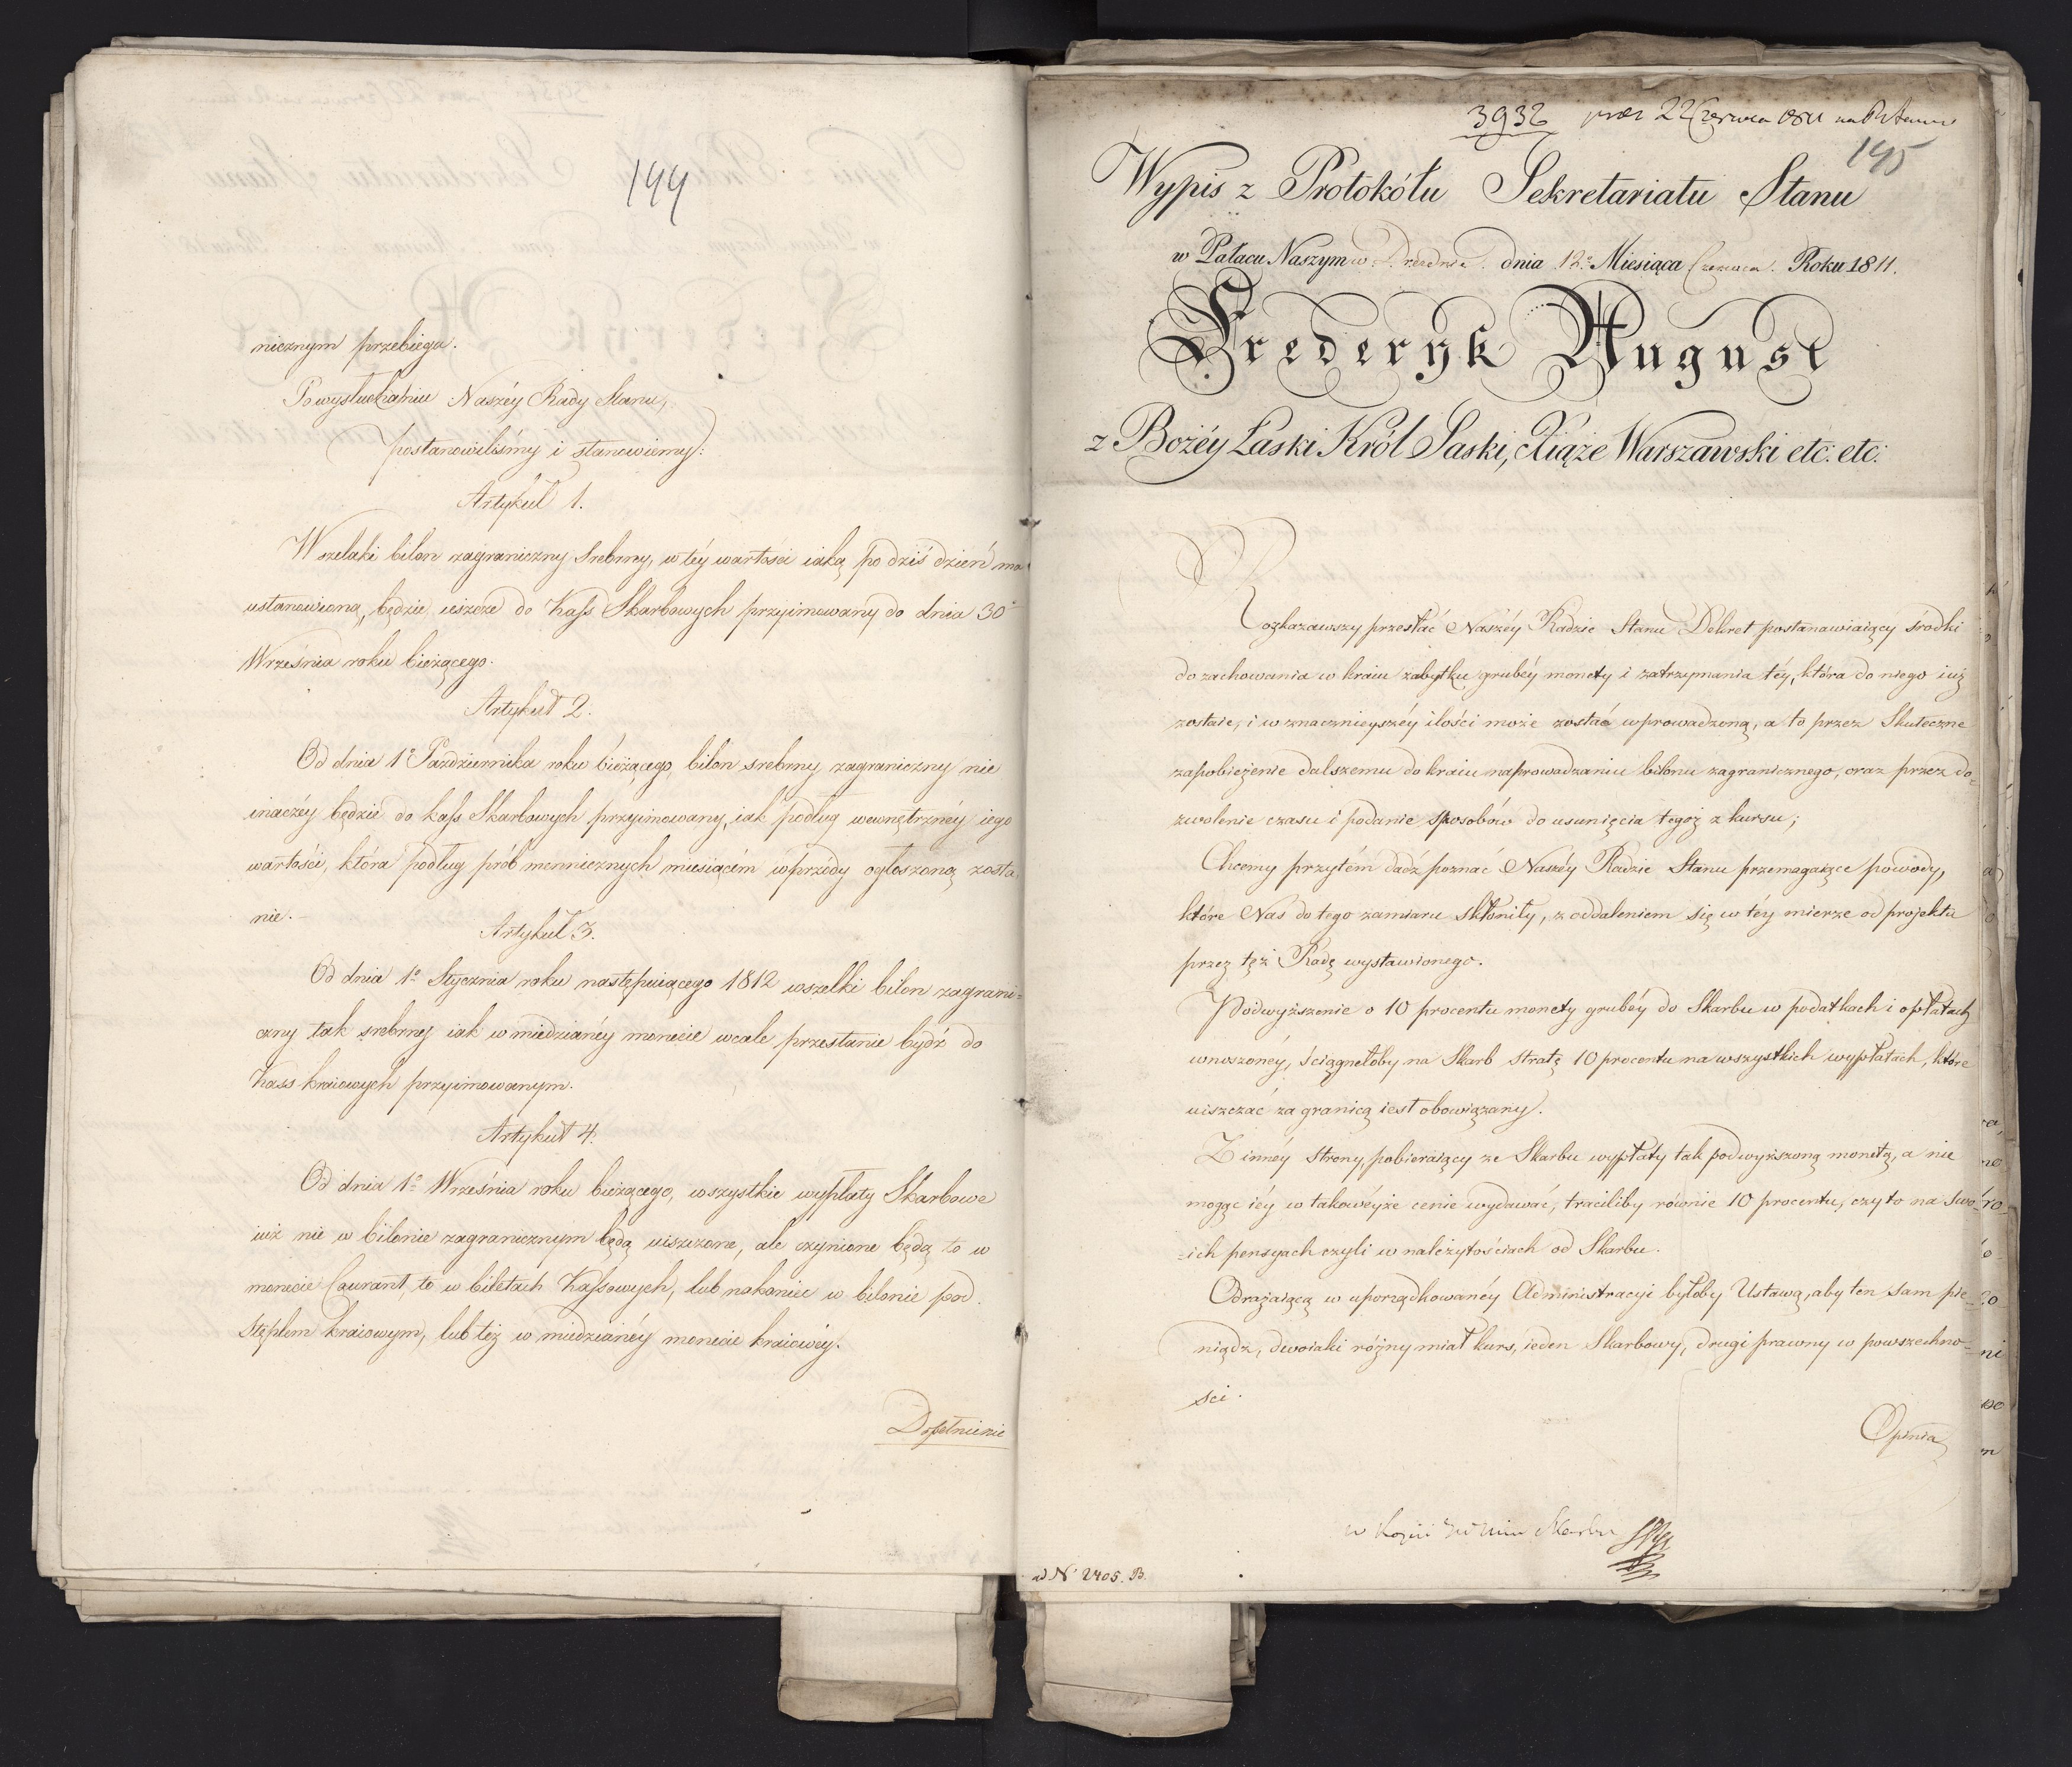 144
nicznym przebiega.
Po wysłuchaniu Naszéy Rady Stanu,
postanowiliśmy i stanowiemy:
Artykuł 1.
Wszelaki bilon zagraniczny srebrny, w téy wartości iaką po dziś dzień ma
ustanowioną, będzie ieszcze do Kass Skarbowych przyimowany do dnia 30º
Września roku bieżącego.
Artykuł 2.
Od dnia 1º Października roku bieżącego, bilon srebrny zagraniczny nie
inaczéy będzie do kass Skarbowych przyimowany, iak podług wewnętrznéy iego
wartości, która podług prób menniczných miesiącem wprzódy ogłoszoną zosta
nie.
Artykuł 3.
Od dnia 1º Stycznia roku następuiącego 1812 wszelki bilon zagrani=
czny tak srebrny iak w miedzianéy monecie wcale przestanie bydź do
Kass kraiowych przyimowanym.
Artykuł 4.
Od dnia 1º Września roku bieżącego, wszystkie wypłaty Skarbowe
iuż nie w bilonie zagranicznym będą uiszczone, ale czynione będą to w
monecie Courant, to w biletach Kassowych, lub nakoniec w bilonie pod
stęplem kraiowym, lub też w miedzianéy monecie kraiowéy.
Dopełnienie
3932 prez 22 Czerwca 1811
145
Wypis z Protokółu Sekretariatu Stanu
w Pałacu Naszym w Dreznie dnia 12º Miesiąca Czerwca. Roku 1811.
Frederyk August
z Bożéy Łaski Król Saski, Xiąże Warszawski etc: etc:
Rozkazawszy przesłać Naszéy Radzie Stanu Dekret postanawiaiący środki
do zachowania w kraiu zabytku grubéy monety i zatrzymania téy, która do niego iuż
zostaie, i w znacznieyszéy ilości może zostać wprowadzoną, a to przez Skuteczne
zapobieżenie dalszemu do kraiu naprowadzaniu bilonu zagranicznego, oraz przez do=
zwolenie czasu i podanie sposobów do usunięcia tegoż z kursu;
Chcemy przytém dadź poznać Naszéy Radzie Stanu przemagaiące powody,
które Nas do tego zamiaru skłoniły, z oddaleniem się w téy mierze od projektu
przez tęż Radę wystawionego.
Podwyższenie o 10 procentu monety grubéy do Skarbu w podatkach i opłatach
wnoszonéy, ściągnęłoby na Skarb stratę 10 procentu na wszystkich wypłatach, które
uiszczać za granicą iest obowiązany.
Z innéy strony pobieraiący ze Skarbu wypłaty tak podwyższoną monetą, a nie
mogąc iéy w takowéyże cenie wydawać, traciliby równie 10 procentu, czy to na swo=
=ich pensyach czyli w należytościach od Skarbu.
Odrażaiącą w uporządkowanéy Administracyi byłoby Ustawą, aby ten sam pie=
niądz, dwoiaki różny miał kurs, ieden Skarbowy, drugi prawny w powszechno=
sci.
Opinia
w Kopii Min Skarbu
ad Nº 2405. B.